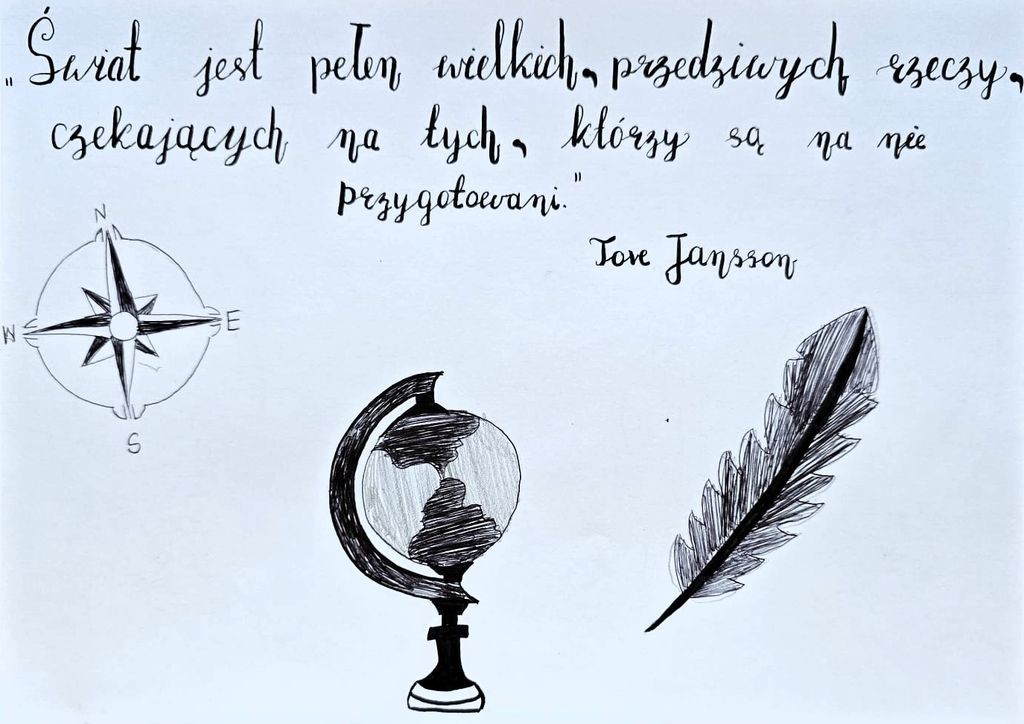 „Świat jest pełen wielkich, przedziwych rzeczy,
czekających na tych, którzy są na nie
przygotowani."
Tove Jansson
N
W E
S